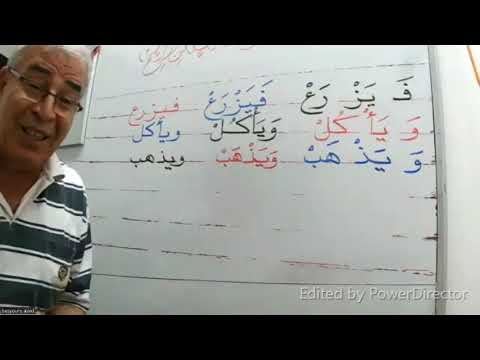 فَ يَزْ رَعْ فَيَزْرَعُ فيزرع
وَ يَأْ كُلْ وَيَأْكُلْ ويأكل
وَ يَذْ هَبْ وَيَذْهَبْ ويذهب
Edited by PowerDirector